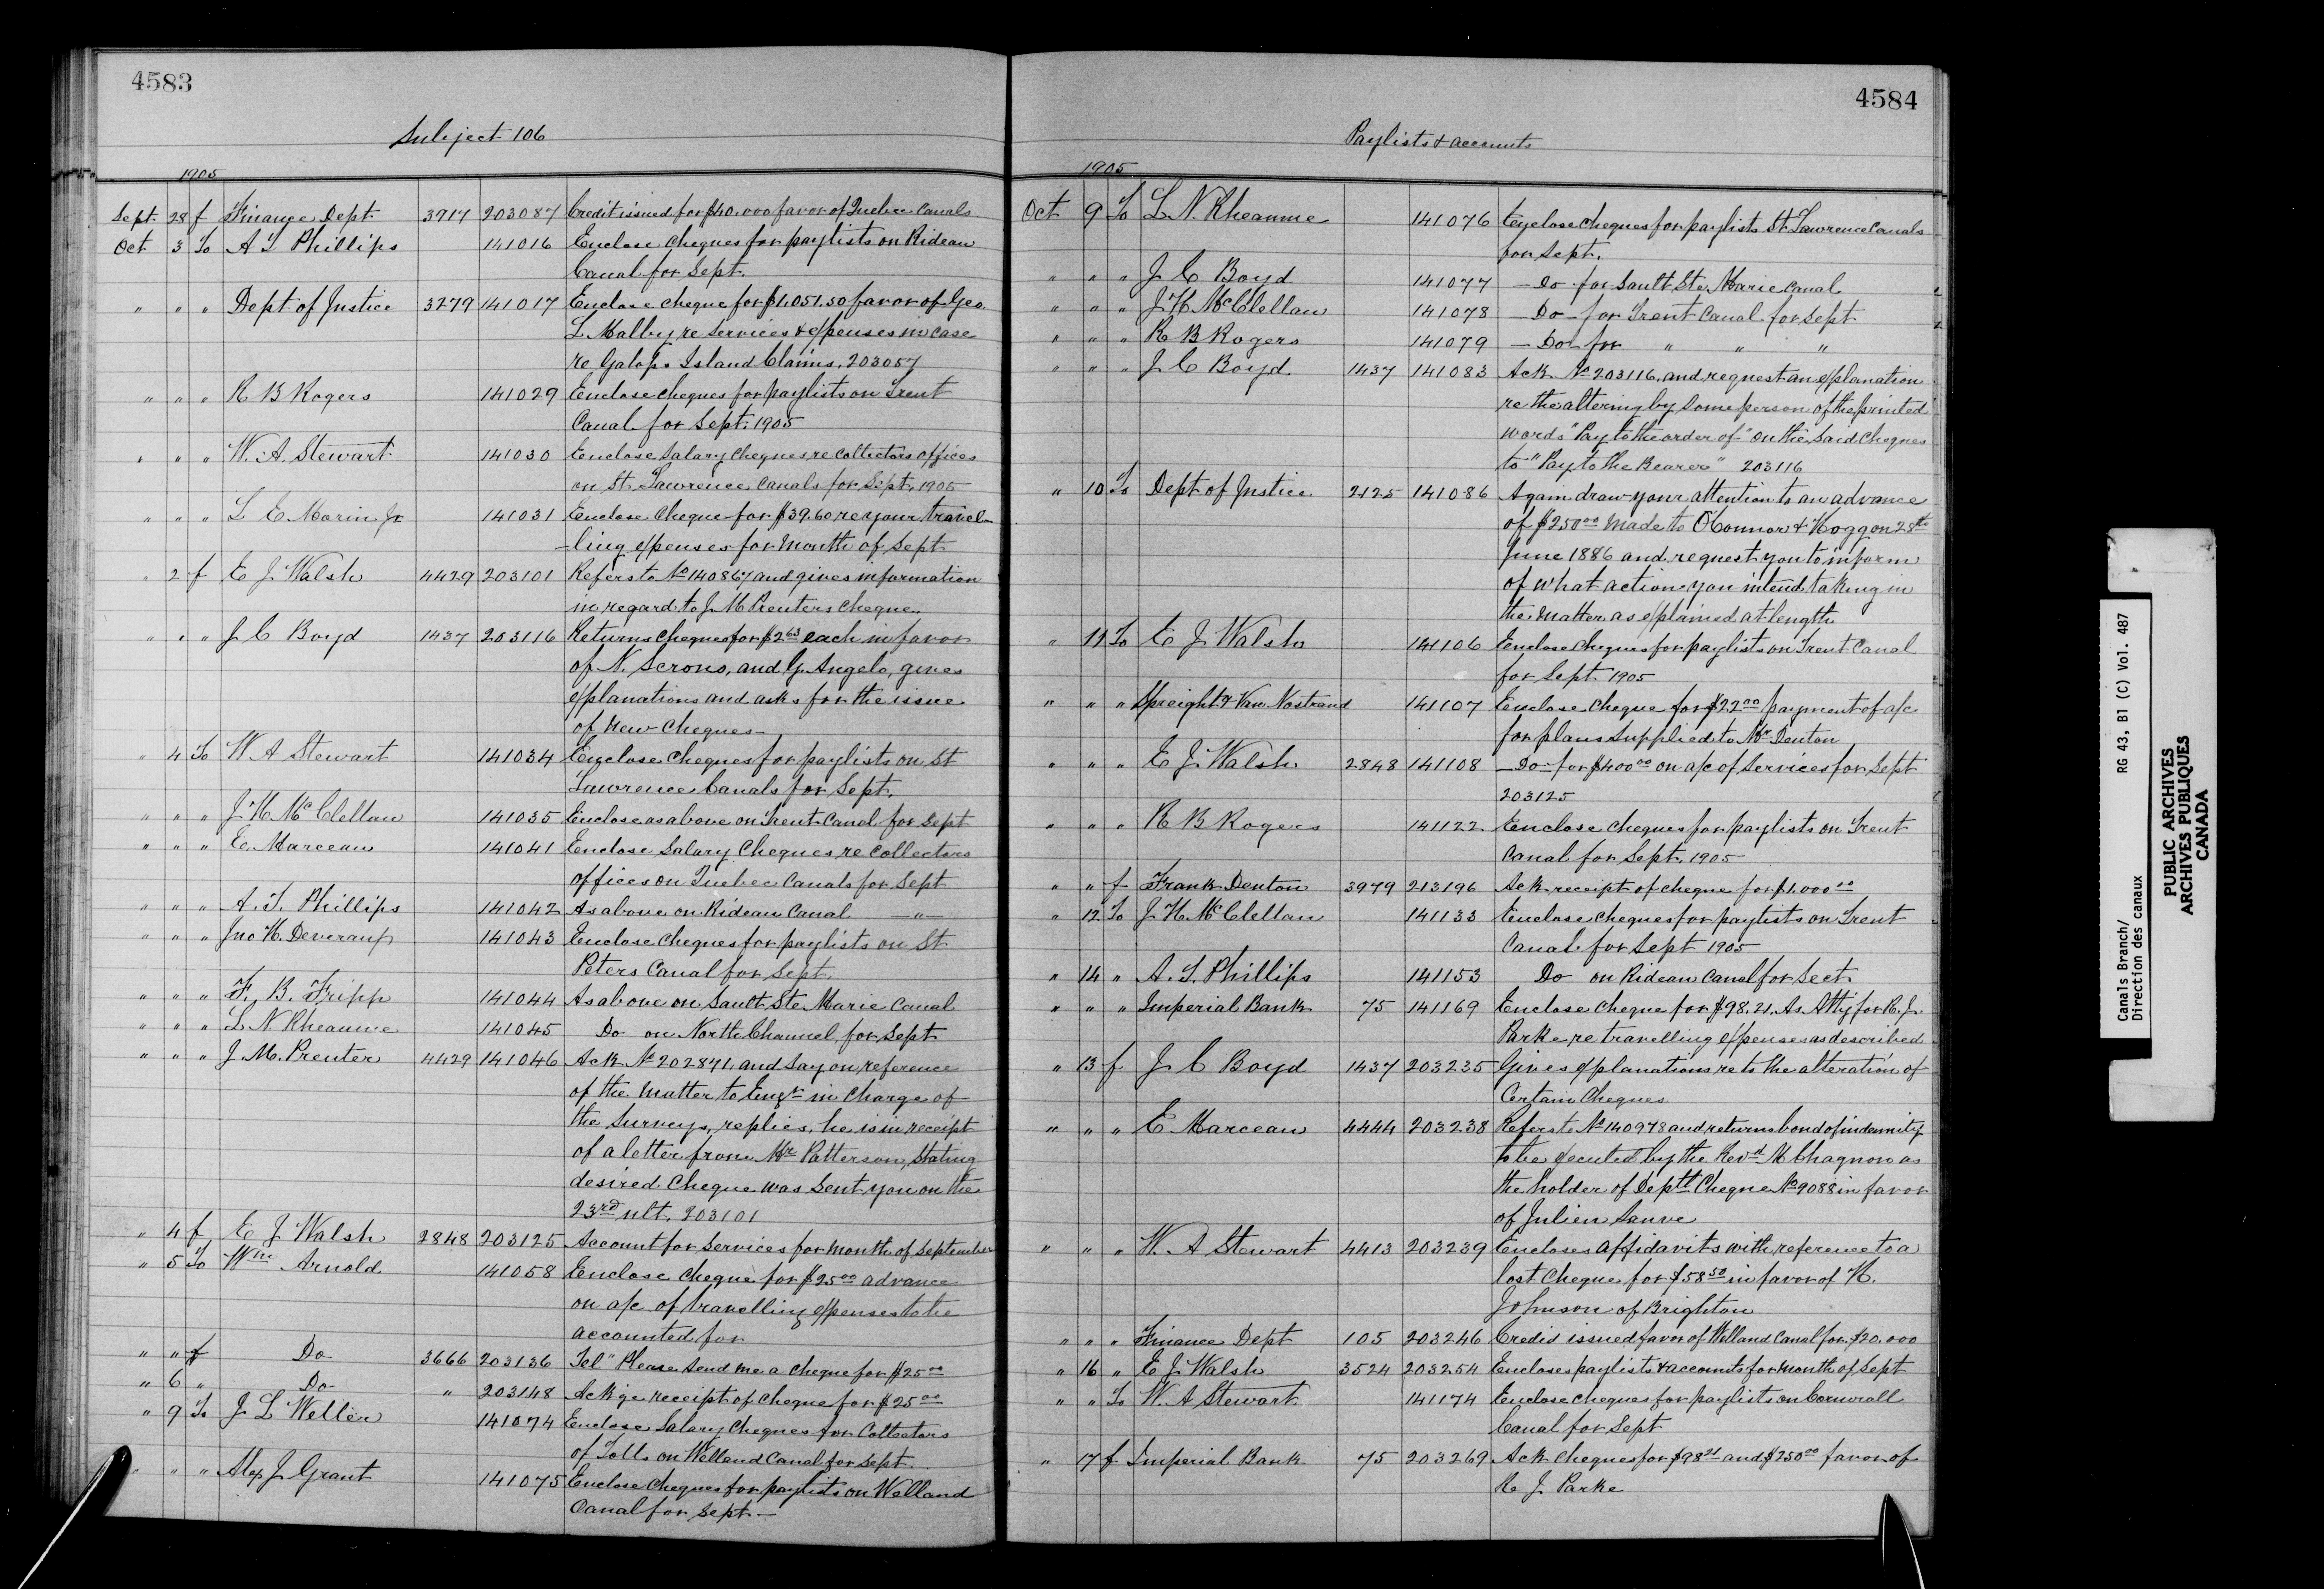 4583
Subject 106
1905
Sept. 28 f Finance Dept. 3917 203087 Credit issued for $40.000 favor of Quebec Canals
Oct 3 To A T Phillips 141016 Enclose cheques for paylists on Rideau
Canal for Sept.
" " " Dept of Justice 3279 141017 Enclose cheque for $1,051.50 favor of Geo.
L. Malby re services & expenses in case
re Galops Island Claims. 203057
" " " R B Rogers 141029 Enclose cheques for paylists on Trent
Canal for Sept. 1905
" " " W. A. Stewart 141030 Enclose Salary cheques, re collectors offices
on St. Lawrence Canals for Sept. 1905
" " " L E Morin Jr 141031 Enclose Cheque for $39.60 re your travel-
-ling expenses for Month of Sept
" 2 f E J Walsh 4429 203101 Refers to No 140867 and gives information
in regard to J. M Prenters Cheque.
" " " J C Boyd 1437 203116 Returns cheques for $2.63 each in favor
of N. Scrono, and G. Angelo, gives
explanations and asks for the issue
of new Cheques
" 4 To W A Stewart 141034 Enclose Cheques for paylists on St
Lawrence Canals for Sept.
" " " J H McClellan 141035 Enclose as above on Trent Canal for Sept
" " " E. Marceau 141041 Enclose Salary Cheques, re Collectors
offices on Quebec Canals for Sept
" " " A. T. Phillips 141042 As above on Rideau Canal — " —
" " " Jno H. Deveraux 141043 Enclose cheques for paylists on St
Peters Canal for Sept.
" " " F. B. Fripp 141044 As above on Sault Ste Marie Canal
" " " L N Rheaume 141045 Do on North Channel, for Sept
" " " J. M. Prenter 4429 141046 Ack No 202871, and say on, reference
of the matter to Engr in Charge of
the Surveys, replies, he is in receipt
of a letter from Mr Patterson, stating
desired Cheque was sent you on the
23rd ult. 203101
" 4 f E J Walsh 2848 203125 Account for Services for month of September
" 5 To Wm Arnold 141058 Enclose cheque for $25.00 advance
on a/c of travelling expenses to be
accounted for
" " f Do 3666 203136 Tel "Please send me a cheque for $25.00
" 6 " Do " 203148 Ackge receipt of cheque for $25.00
" 9 To J L Weller 141074 Enclose Salary Cheques for Collectors
of Tolls on Welland Canal for Sept.
" " " Alex J Grant 141075 Enclose Cheques for paylists on Welland
Canal for Sept. —
4584
Paylists & accounts
1905
Oct 9 To L. N. Rheaume 141076 Enclose cheques for paylists St Lawrence Canals
for Sept.
" " " J C Boyd 141077 — Do for Sault Ste Marie Canal
" " " J H McClellan 141078 — Do — for Trent Canal for Sept
" " " R B Rogers 141079 — Do — for " " "
" " " J C Boyd 1437 141083 Ack No 203116, and request an explanation
re the altering by some person of the printed
words "Pay to the order of" on the said cheques
to "Pay to the Bearer" 203116
" 10 To Dept of Justice 2125 141086 Again draw your attention to an advance
of $250.00 made to O'Connor & Hogg on 28th
June 1886 and request you to inform
of what action you intend taking in
the matter as explained at length
" 11 To E J Walsh 141106 Enclose cheques for paylists on Trent Canal
for Sept 1905
" " " Speight & Van Nostrand 141107 Enclose cheque for $22.00 payment of a/c
for plans supplied to Mr Denton
" " " E J Walsh 2848 141108 — Do — for $400.00 on a/c of services for Sept
203125
" " " R B Rogers 141122 Enclose cheques for paylists on Trent
Canal for Sept. 1905
" " f Frank Denton 3979 213196 Ack receipt of cheque for $1.000.00
" 12 To J H McClellan 141133 Enclose cheques for paylists on Trent
Canal for Sept 1905
" 14 " A. T. Phillips 141153 Do on Rideau Canal for Sect.
" " " Imperial Bank 75 141169 Enclose cheque for $98.21. As Atty for R. J.
Parke, re travelling expenses as described
" 13 f J C Boyd 1437 203235 Gives explanations re to the alteration of
Certain Cheques.
" " " E Marceau 4444 203238 Refers to No 140978 and returns bond of indemnity
to be executed by the Revd M Chagnon as
the holder of Deptl Cheque No 9088 in favor
of Julien Sauve
" " " W. A Stewart 4413 203239 Encloses affidavits with, reference to a
lost cheque for $58.50 in favor of H.
Johnson of Brighton
" " " Finance Dept 105 203246 Credit issued favor of Welland Canal for $20.000
" 16 " E J Walsh 3524 203254 Encloses paylists & accounts for month of Sept
" " To W. A Stewart 141174 Enclose cheques for paylists on Cornwall
Canal for Sept
" 17 f Imperial Bank 75 203269 Ack cheques for $98.21 and $250.00 favor of
R J Parke
Canals Branch/ RG 43, B1 (C) Vol. 487
Direction des canaux
PUBLIC ARCHIVES
ARCHIVES PUBLIQUES
CANADA